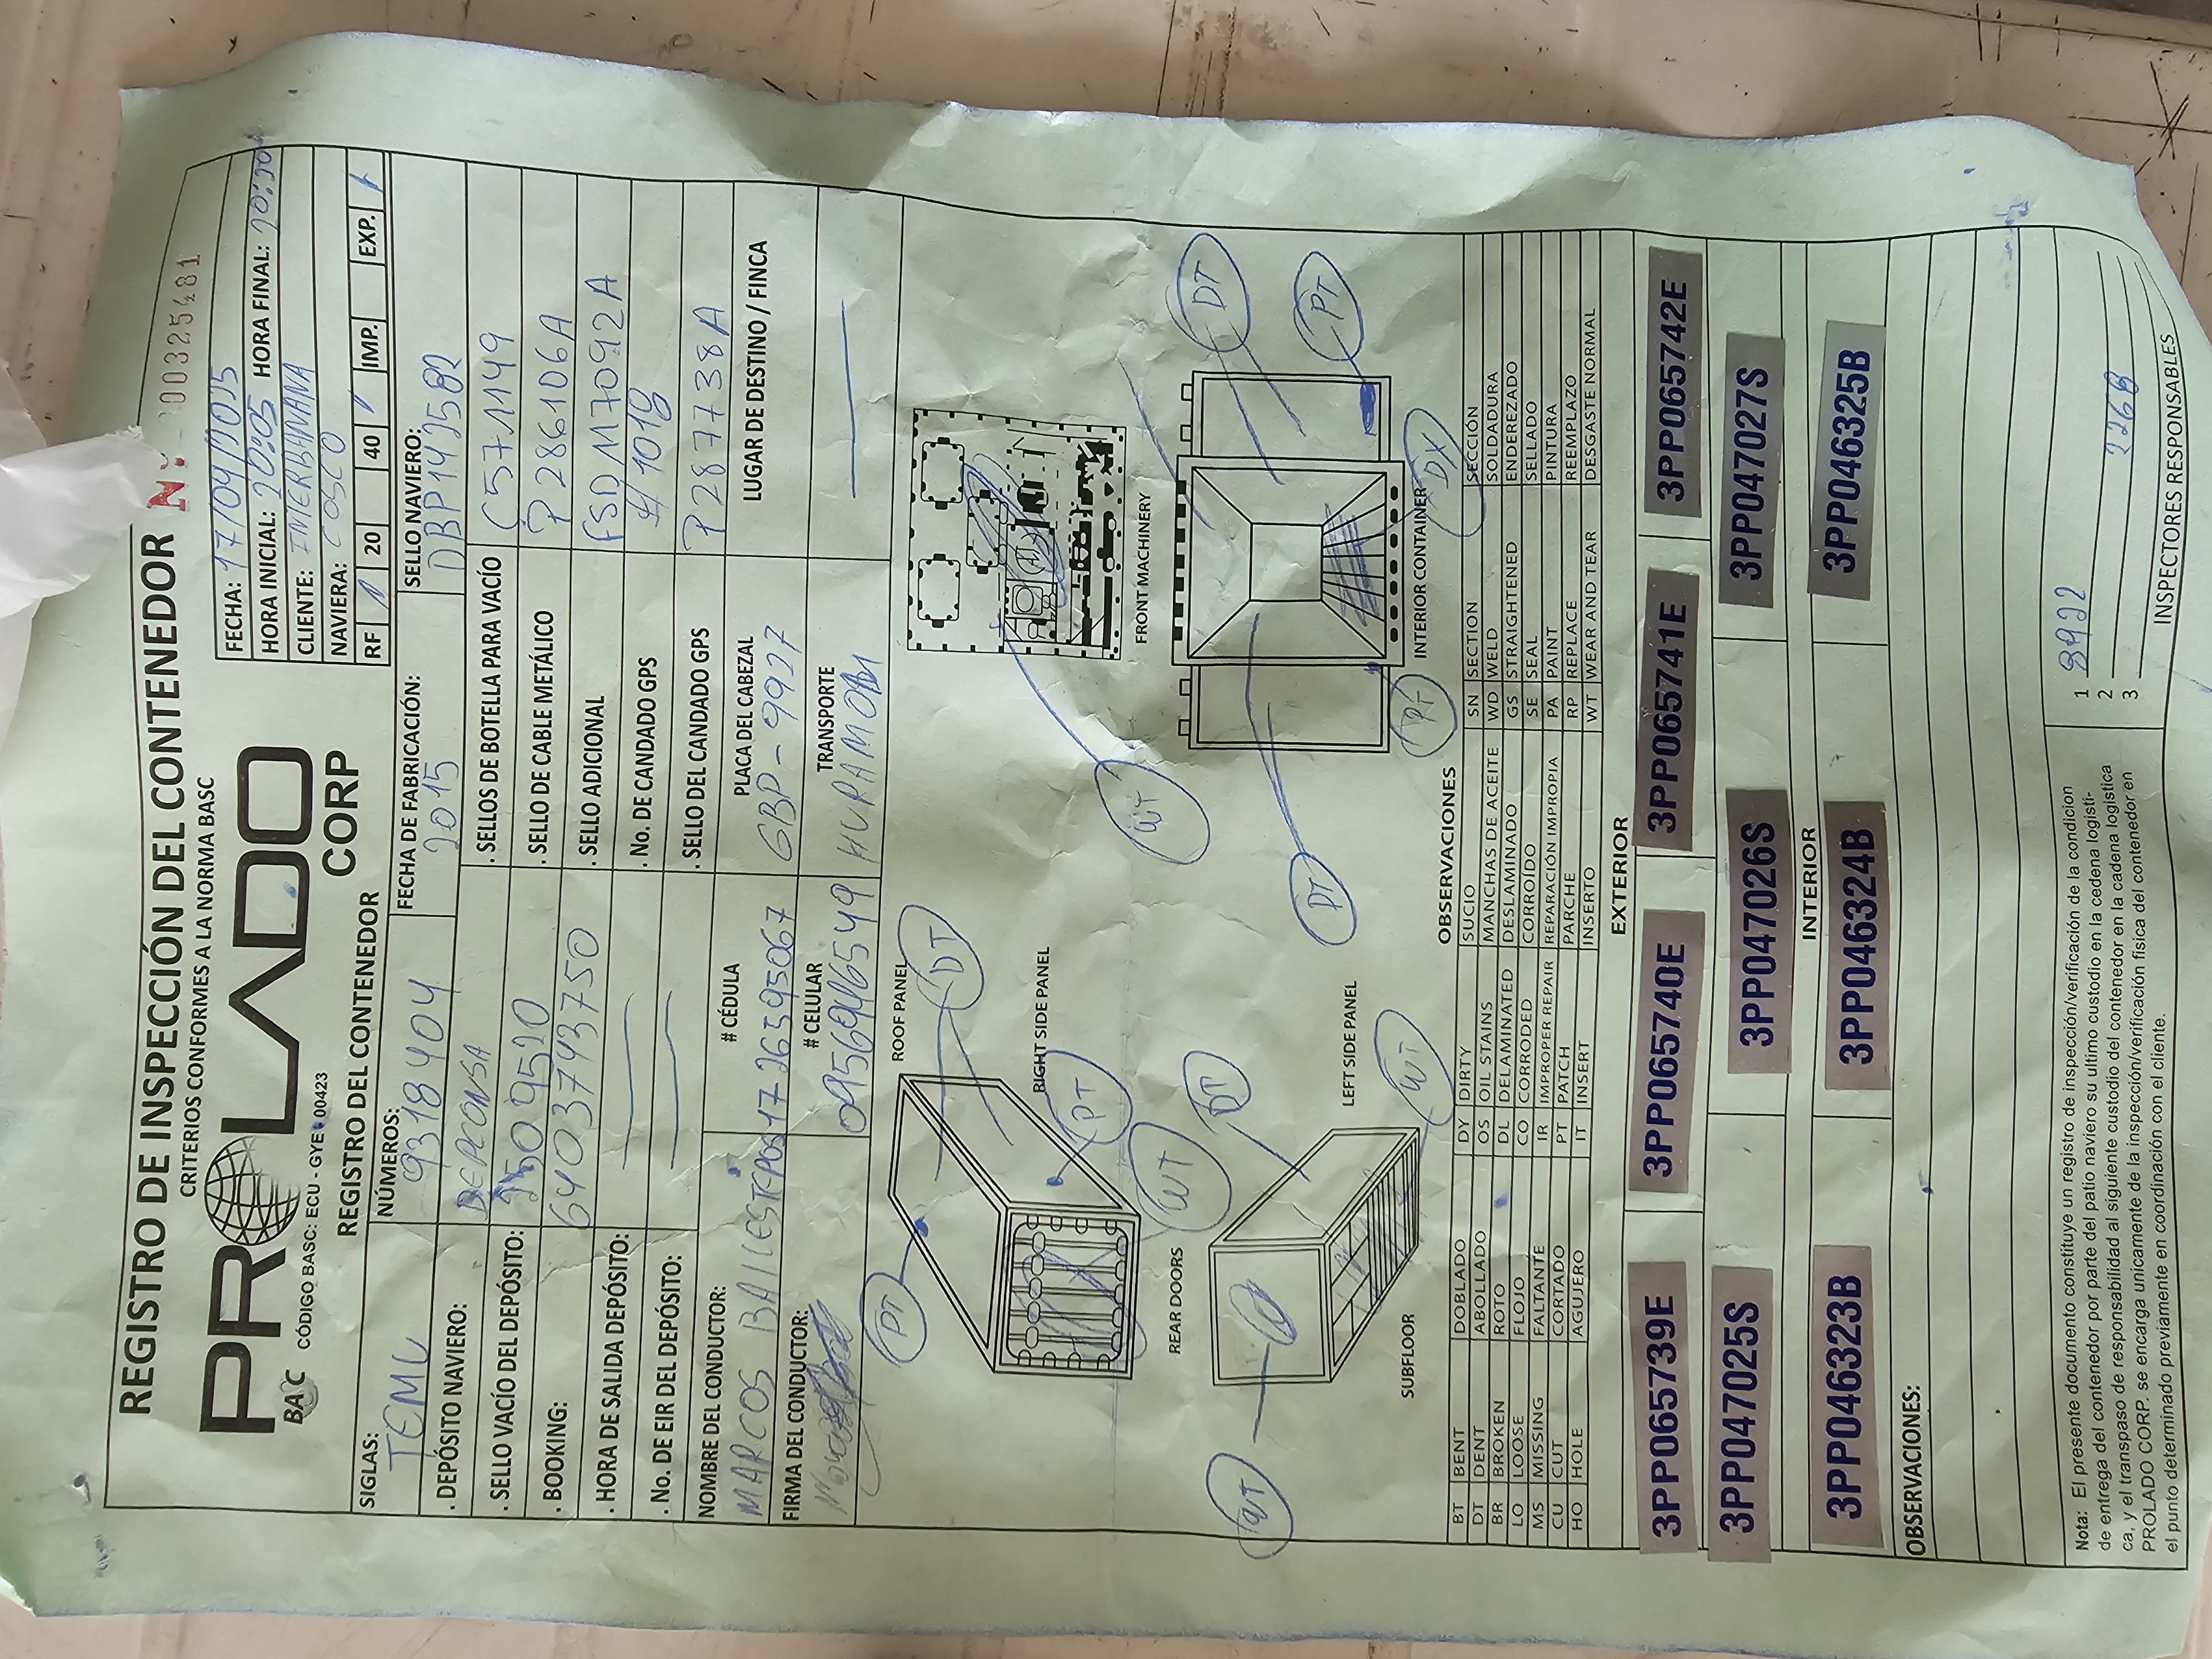 REGISTRO DE INSPECCIÓN DEL CONTENEDOR
00325481
CRITERIOS CONFORMES A LA NORMA BASC
PROLADO
CORP
CÓDIGO BASC: ECU - GYE 00423
FECHA: 17/04/2025
HORA INICIAL: 20:05 HORA FINAL: 20:20
CLIENTE: INTERBANANA
NAVIERA: COSCO
RF 20 40 IMP. EXP.
REGISTRO DEL CONTENEDOR
SIGLAS: TEMU
NÚMEROS: 9318404
FECHA DE FABRICACIÓN: 2015
SELLO NAVIERO: DBP142582
. DEPÓSITO NAVIERO: DEPCONSA
. SELLOS DE BOTELLA PARA VACÍO C571149
. SELLO VACÍO DEL DEPÓSITO: 2509520
. SELLO DE CABLE METÁLICO P286106A
. BOOKING: 6403743750
. SELLO ADICIONAL FSDM7092A
. HORA DE SALIDA DEPÓSITO:
. No. DE CANDADO GPS #1018
. No. DE EIR DEL DEPÓSITO:
. SELLO DEL CANDADO GPS P287738A
NOMBRE DEL CONDUCTOR: MARCOS BALLESTEROS
# CÉDULA 1726595067
PLACA DEL CABEZAL GBP-9927
LUGAR DE DESTINO / FINCA
FIRMA DEL CONDUCTOR:
# CELULAR 0956946549
TRANSPORTE
PT
ROOF PANEL
DT
RIGHT SIDE PANEL
PT
REAR DOORS
WT
WT
FRONT MACHINERY
WT
DT
LEFT SIDE PANEL
SUBFLOOR
WT
DT
DT
PT
PT
INTERIOR CONTAINER
DX
OBSERVACIONES
BT BENT DOBLADO DY DIRTY SUCIO SN SECTION SECCIÓN
DT DENT ABOLLADO OS OIL STAINS MANCHAS DE ACEITE WD WELD SOLDADURA
BR BROKEN ROTO DL DELAMINATED DESLAMINADO GS STRAIGHTENED ENDEREZADO
LO LOOSE FLOJO CO CORRODED CORROÍDO SE SEAL SELLADO
MS MISSING FALTANTE IR IMPROPER REPAIR REPARACIÓN IMPROPIA PA PAINT PINTURA
CU CUT CORTADO PT PATCH PARCHE RP REPLACE REEMPLAZO
HO HOLE AGUJERO IT INSERT INSERTO WT WEAR AND TEAR DESGASTE NORMAL
EXTERIOR
3PP065739E 3PP065740E 3PP065741E 3PP065742E
3PP047025S 3PP047026S 3PP047027S
INTERIOR
3PP046323B 3PP046324B 3PP046325B
OBSERVACIONES:
Nota: El presente documento constituye un registro de inspección/verificación de la condicion
de entrega del contenedor por parte del patio naviero su ultimo custodio en la cedena logisti-
ca, y el transpaso de responsabilidad al siguiente custodio del contenedor en la cadena logistica
PROLADO CORP. se encarga unicamente de la inspección/verificación fisica del contenedor en
el punto determinado previamente en coordinación con el cliente.
1 8922
2
3 2268
INSPECTORES RESPONSABLES